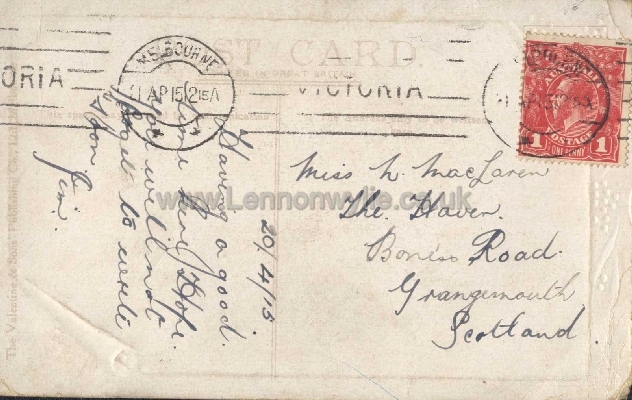 POST CARD.
MELBOURNE
21 AP 15 2 15 A
VICTORIA
ORIA
AUSTRALIA
POSTAGE
1 ONE PENNY 1
Miss N. MacLaren
The Haven.
Boness Road.
Grangemouth
Scotland.
20/4/15
Having a good
time here. Hope
you will not
forget to write
Jim.
The Valentine & Sons' Publishing Co.
www.Lennonwylie.co.uk